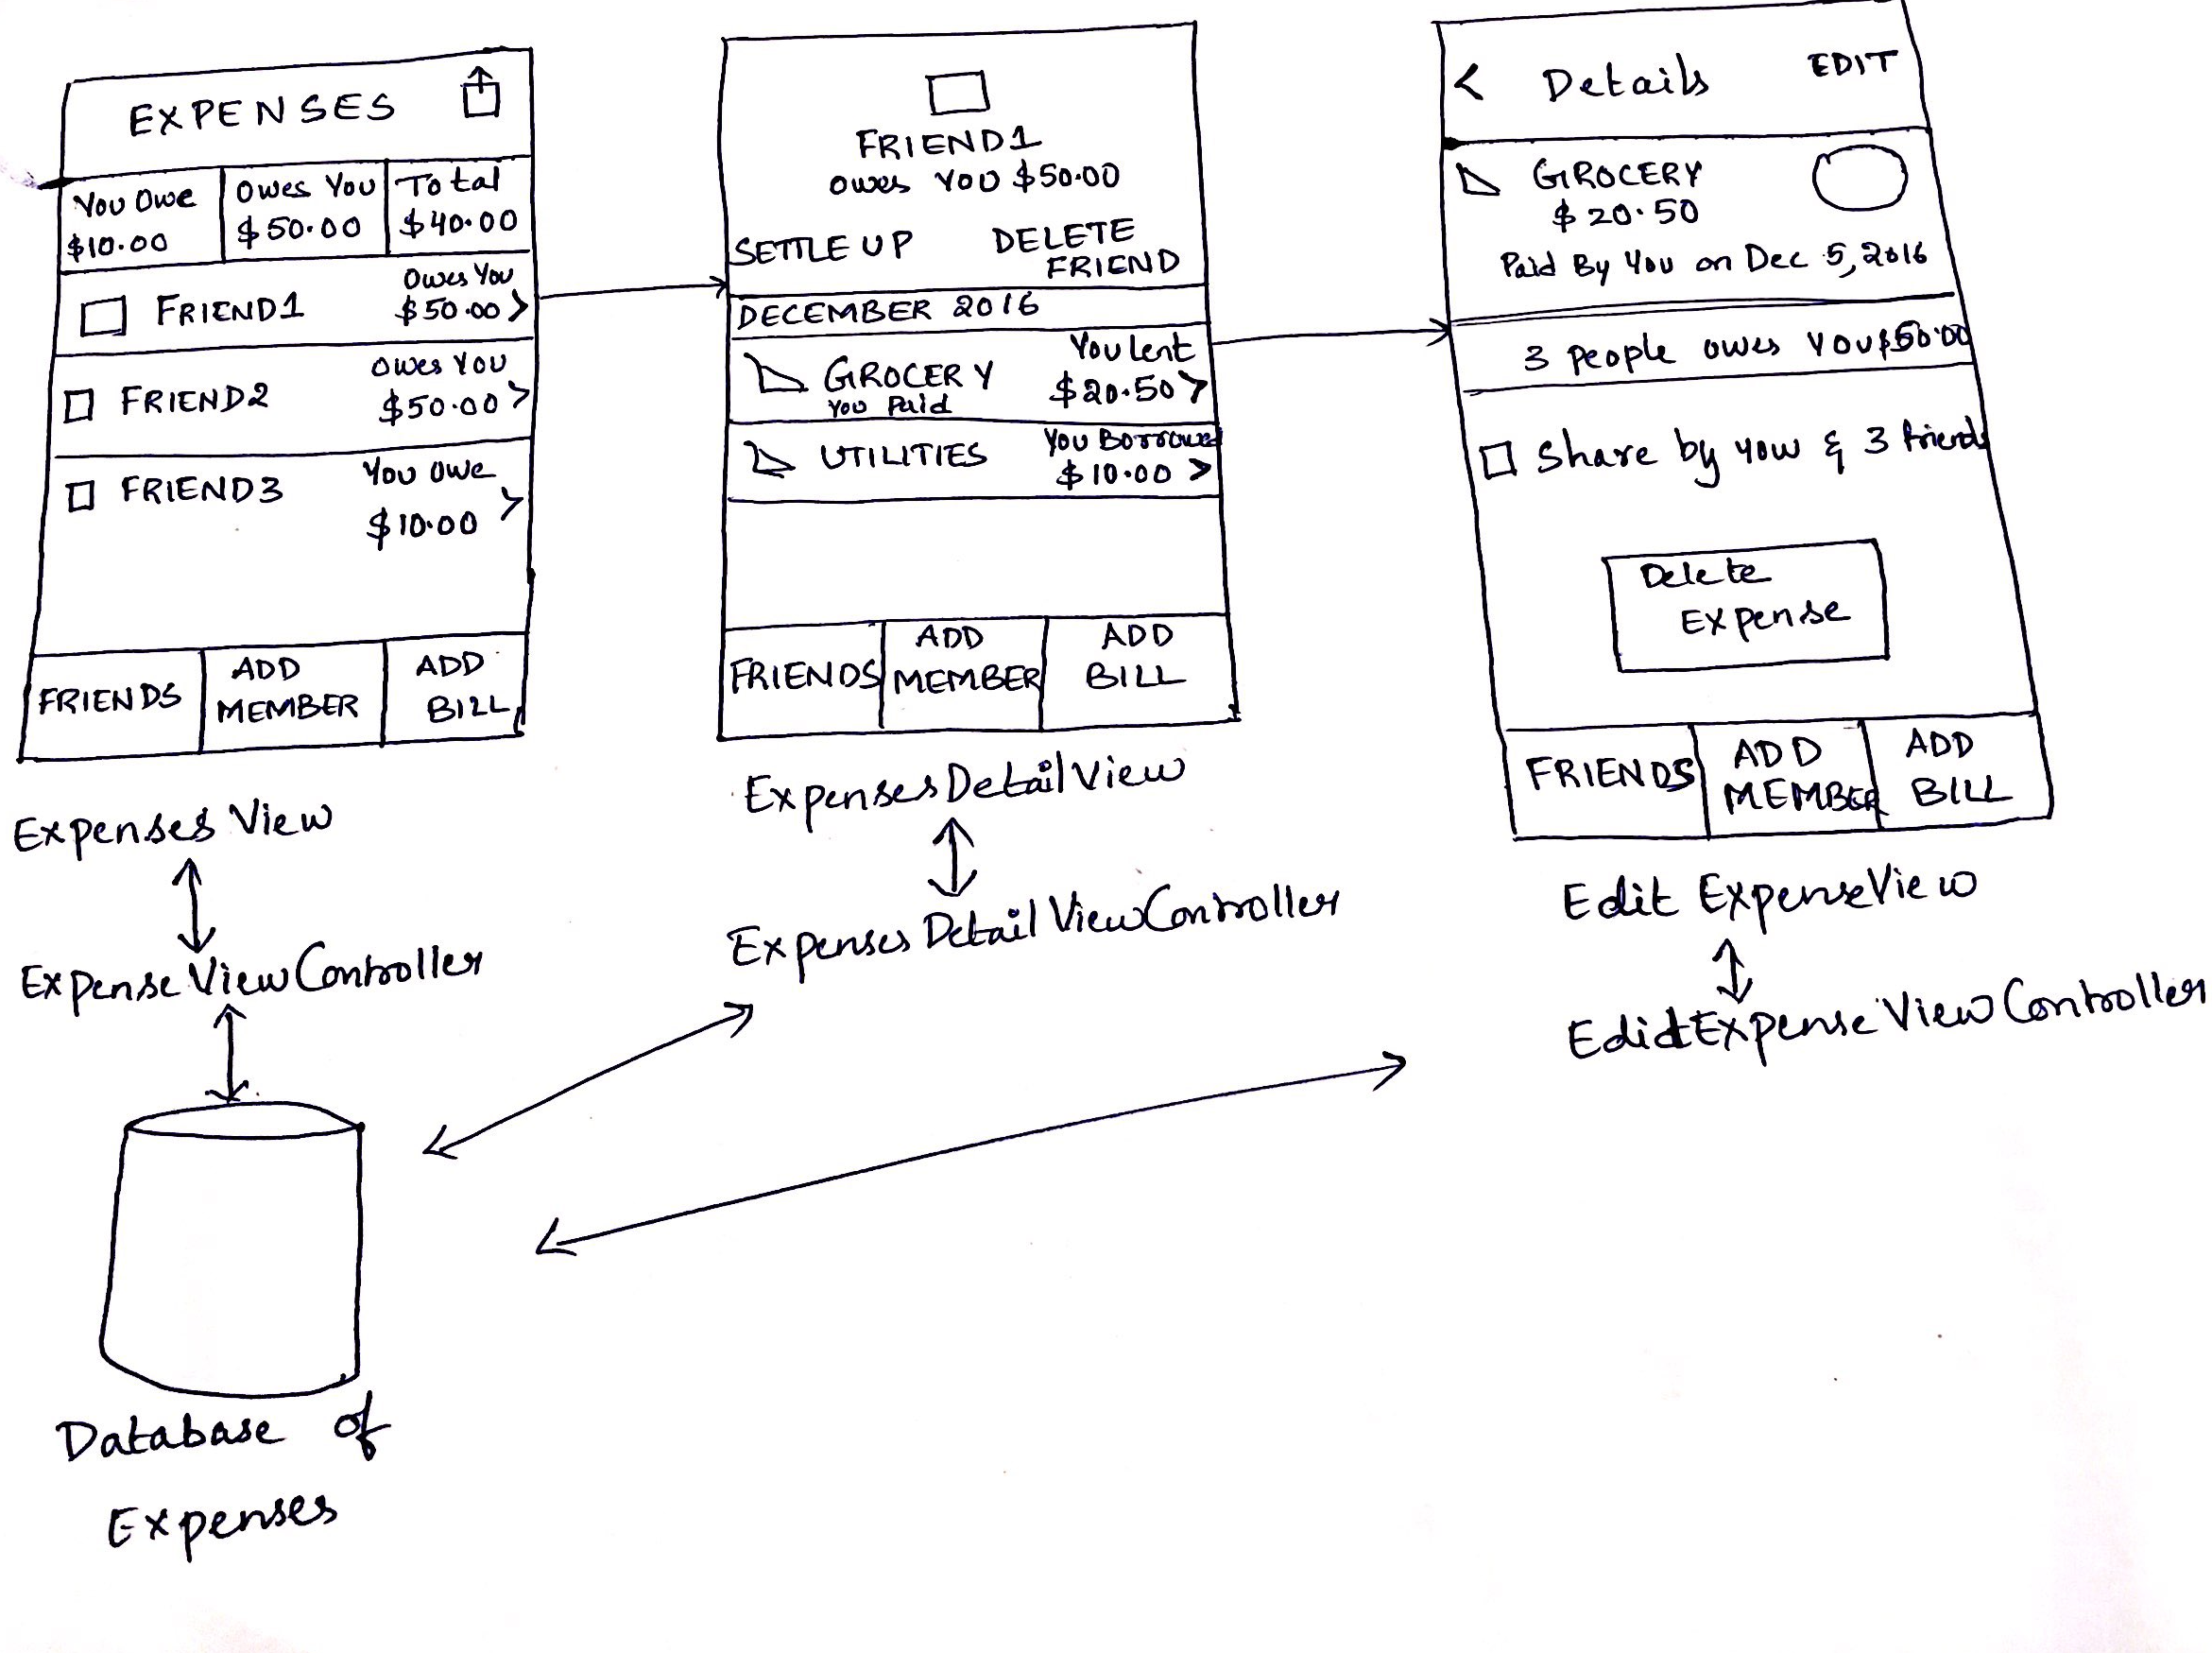 EXPENSES
You Owe
$10.00
Owes You
$50.00
Total
$40.00
FRIEND1
Owes You
$50.00 >
FRIEND2
Owes You
$50.00 >
FRIEND3
You Owe
$10.00 >
FRIENDS
ADD
MEMBER
ADD
BILL
Expenses View
Expense View Controller
Database of
Expenses
FRIEND1
owes YOU $50.00
SETTLE UP
DELETE
FRIEND
DECEMBER 2016
GROCERY
You Paid
You lent
$20.50 >
UTILITIES
You Borrowed
$10.00 >
FRIENDS
ADD
MEMBER
ADD
BILL
ExpensesDetailView
Expenses Detail ViewController
< Details EDIT
GROCERY
$20.50
Paid By You on Dec 5, 2016
3 people owes You $50.00
Share by yow & 3 friends
Delete
Expense
FRIENDS
ADD
MEMBER
ADD
BILL
Edit ExpenseView
EditExpense View Controller